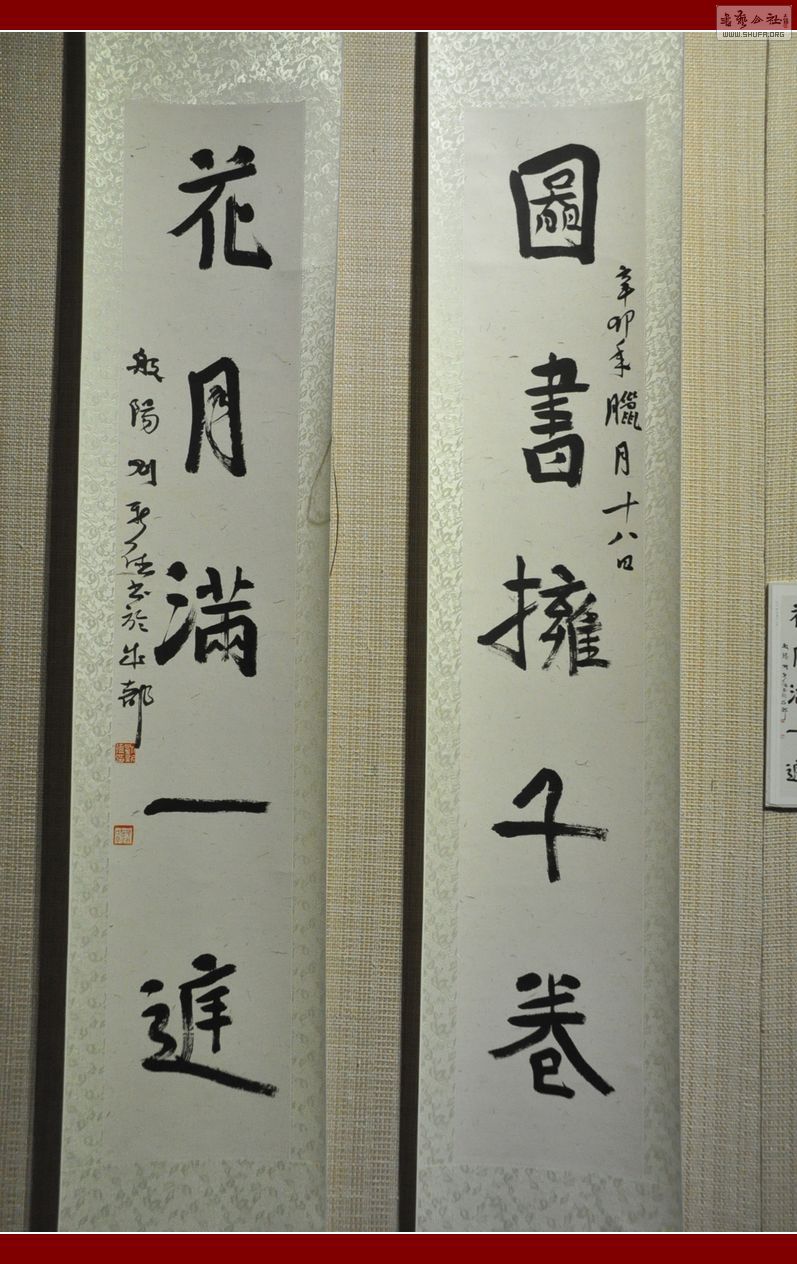 書藝公社
WWW.SHUFA.ORG
圖書擁千卷
辛卯年臘月十八日
花月滿一
般陽刘新德书於成都